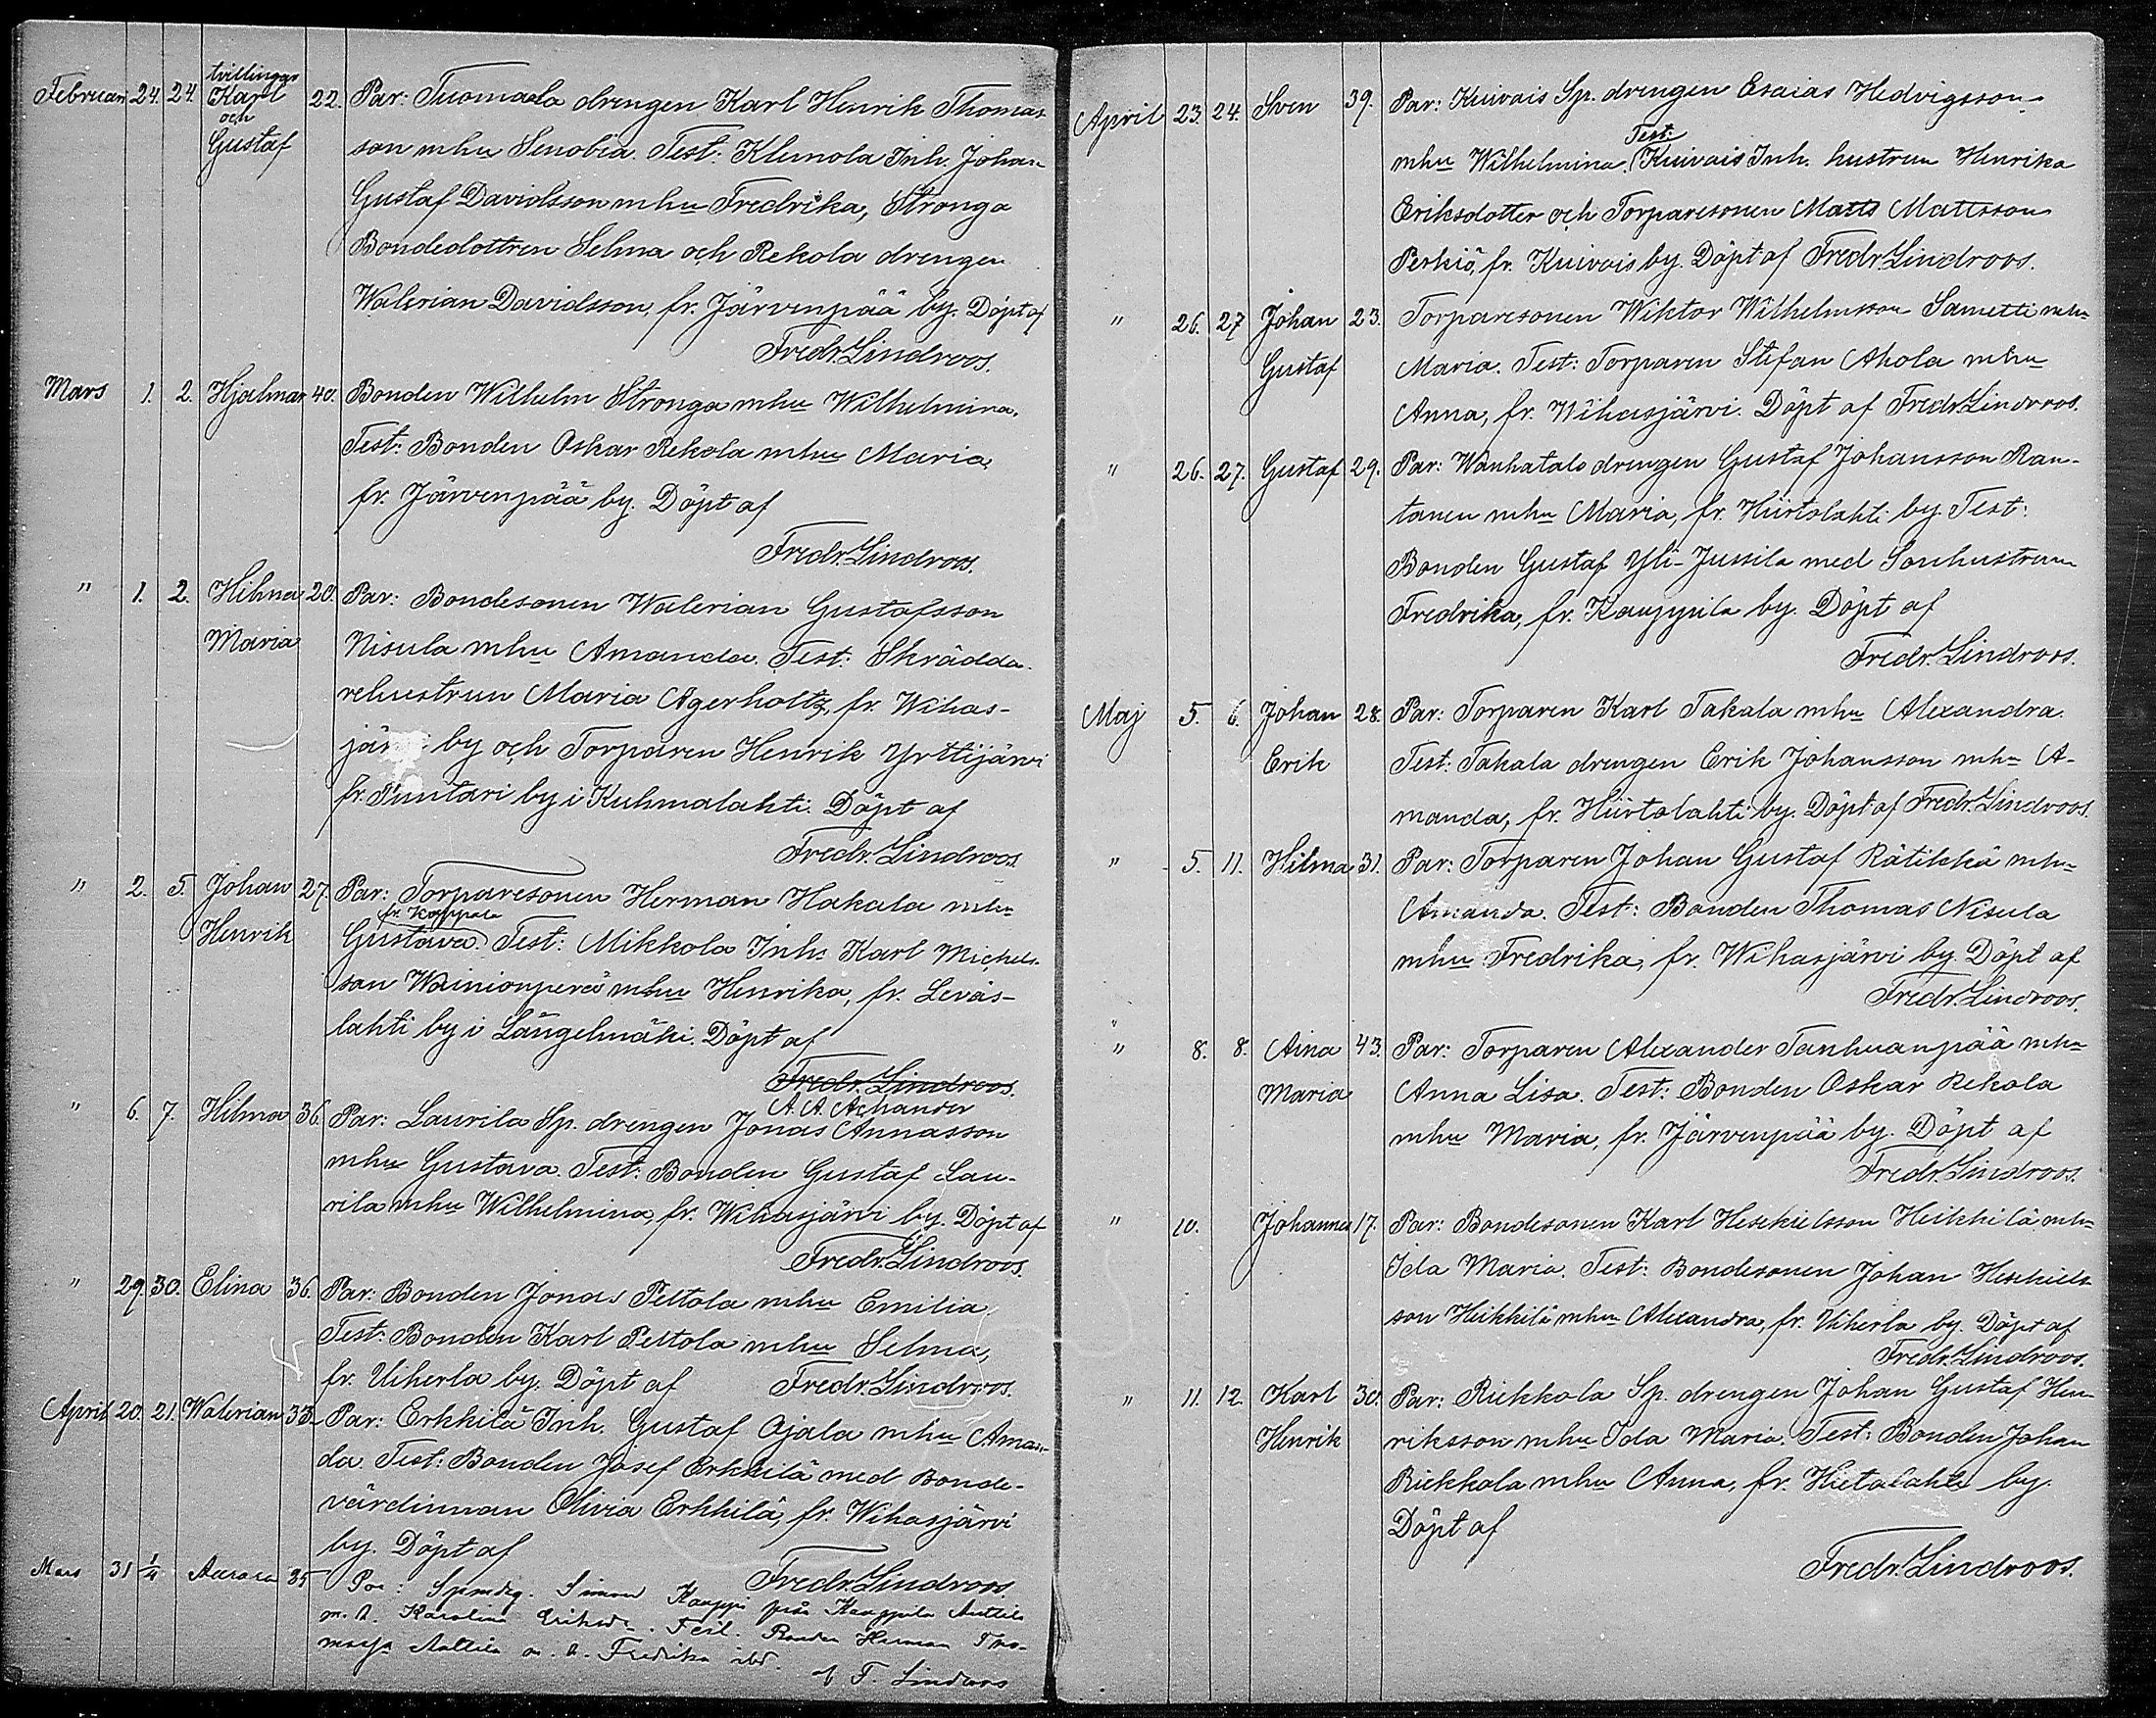 tvillingar
Februari 24. 24. Karl och 22. Par: Tuomaala drengen Karl Henrik Thomas-
Gustaf son mhu Senobia. Test: Klemola Inh. Johan
Gustaf Davidsson mhu Fredrika, Stronga
Bondedottren Selma och Rekola drengen
Walerian Davidsson, fr. Järvenpää by. Döpt af
Fredr. Lindroos.
Mars 1. 2. Hjalmar 40. Bonden Wilhelm Stronga mhu Wilhelmina.
Test: Bonden Oskar Rekola mhu Maria,
fr. Järvenpää by. Döpt af
Fredr. Lindroos.
" 1. 2. Hilma 20. Par: Bondesonen Walerian Gustafsson
Maria Nisula mhu Amanda. Test: Skrädda-
rehustrun Maria Agerholtz, fr. Wihas-
järvi by och Torparen Henrik Yrttijärvi
fr. Puntari by i Kuhmalahti. Döpt af
Fredr. Lindroos.
" 2. 5. Johan 27. Par: Torparesonen Herman Hakala mhu
fr. Kappala
Henrik Gustava. Test: Mikkola Inhs Karl Michels-
son Wainionperä mhu Henrika, fr. Leväs-
lahti by i Längelmäki. Döpt af
Fredr. Lindroos.
A. A. Achander
" 6. 7. Hilma 36. Par: Laurila Sp. drengen Jonas Annasson
mhu Gustava. Test: Bonden Gustaf Lau-
rila mhu Wilhelmina, fr. Wihasjärvi by. Döpt af
Fredr. Lindroos.
" 29. 30. Elina 36. Par: Bonden Jonas Peltola mhu Emilia.
Test: Bonden Karl Peltola mhu Selma,
fr. Uiherla by. Döpt af Fredr. Lindroos.
April 20. 21. Walerian 33. Par: Erkkilä Inh. Gustaf Ojala mhu Aman-
da. Test: Bonden Josef Erkkilä med Bonde-
värdinnan Olivia Erkkilä, fr. Wihasjärvi
by. Döpt af
Fredr. Lindroos.
Mars 31 1/4 Aurora 35 Par: Spmdrg. Simon Kauppi från Kauppila Anttila
m. h. Karolina Eriksd. Test. Bonden Herman Tho-
Anttila m. h. Fredrika ibd.
af F. Lindroos
April 23. 24. Sven 39. Par: Kuivais Sp. drengen Esaias Hedvigsson
Test:
mhu Wilhelmina. Kuivais Inh. hustrun Henrika
Eriksdotter och Torparesonen Matts Mattsson
Perkiö, fr. Kuivais by. Döpt af Fredr. Lindroos.
" 26. 27 Johan 23. Torparesonen Wiktor Wilhelmsson Sametti mhu
Gustaf Maria. Test: Torparen Stefan Ahola mhu
Anna, fr. Wihasjärvi. Döpt af Fredr. Lindroos.
" 26. 27. Gustaf 29. Par: Wanhatalo drengen Gustaf Johansson Ran-
tanen mhu Maria, fr. Hiirtolahti by. Test:
Bonden Gustaf Yli-Jussila med Sonhustrun
Fredrika, fr. Kauppila by. Döpt af
Fredr. Lindroos.
Maj 5. 6. Johan 28. Par: Torparen Karl Takala mhu Alexandra.
Erik Test: Takala drengen Erik Johansson mhu A-
manda, fr. Hiirtolahti by. Döpt af Fredr. Lindroos.
" 5. 11. Hilma 31. Par: Torparen Johan Gustaf Rätikkä mhu
Amanda. Test: Bonden Thomas Nisula
mhu Fredrika, fr. Wihasjärvi by. Döpt af
Fredr. Lindroos.
" 8. 8. Aina 43. Par: Torparen Alexander Tanhuanpää mhu
Maria Anna Lisa. Test: Bonden Oskar Rekola
mhu Maria, fr. Järvenpää by. Döpt af
Fredr. Lindroos.
" 10. Johannes 17. Par: Bondesonen Karl Heskielsson Heikkilä mhu
Ida Maria. Test: Bondesonen Johan Heskiels-
son Heikkilä mhu Alexandra, fr. Uiherla by. Döpt af
Fredr. Lindroos.
" 11. 12. Karl 30. Par: Riekkola Sp. drengen Johan Gustaf Hen-
Henrik riksson mhu Ida Maria. Test: Bonden Johan
Riekkola mhu Anna, fr. Hietalahti by.
Döpt af
Fredr. Lindroos.